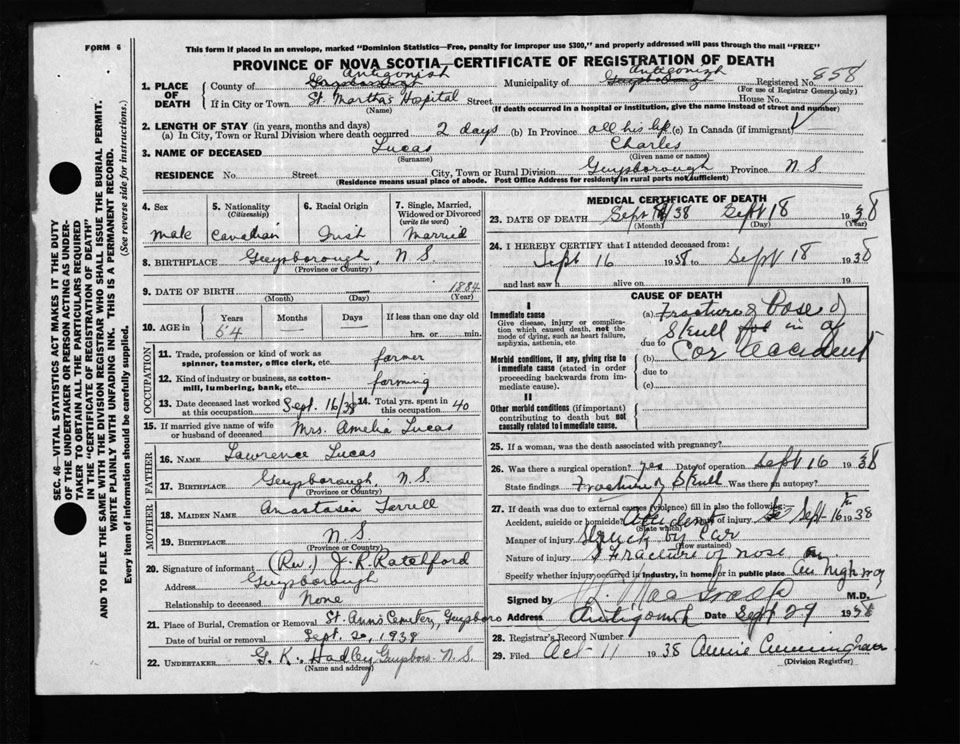 FORM 6
This form if placed in an envelope, marked "Dominion Statistics—Free, penalty for improper use $300," and properly addressed will pass through the mail "FREE"
PROVINCE OF NOVA SCOTIA—CERTIFICATE OF REGISTRATION OF DEATH
SEC. 46—VITAL STATISTICS ACT MAKES IT THE DUTY
OF THE UNDERTAKER OR PERSON ACTING AS UNDER-
TAKER TO OBTAIN ALL THE PARTICULARS REQUIRED
IN THE "CERTIFICATE OF REGISTRATION OF DEATH"
AND TO FILE THE SAME WITH THE DIVISION REGISTRAR WHO SHALL ISSUE THE BURIAL PERMIT.
WRITE PLAINLY WITH UNFADING INK. THIS IS A PERMANENT RECORD.
Every item of information should be carefully supplied. (See reverse side for instructions.)
1. PLACE OF DEATH County of Guysborough Antigonish Municipality of Guysborough Antigonish Registered No. 858
(For use of Registrar General only)
If in City or Town St. Martha's Hospital Street House No.
(Name) (If death occurred in a hospital or institution, give the name instead of street and number)
2. LENGTH OF STAY (in years, months and days)
(a) In City, Town or Rural Division where death occurred 2 days (b) In Province all his life (c) In Canada (if immigrant)
3. NAME OF DECEASED Lucas Charles
(Surname) (Given name or names)
RESIDENCE No. Street City, Town or Rural Division Guysborough Province N.S
(Residence means usual place of abode. Post Office Address for residents in rural parts not sufficient)
4. Sex 5. Nationality (Citizenship) 6. Racial Origin 7. Single, Married, Widowed or Divorced (write the word)
Male Canadian Irish Married
8. BIRTHPLACE Guysborough, N.S.
(Province or Country)
9. DATE OF BIRTH 1884
(Month) (Day) (Year)
10. AGE in Years Months Days If less than one day old
54 hrs. or min.
OCCUPATION
11. Trade, profession or kind of work as spinner, teamster, office clerk, etc. farmer
12. Kind of industry or business, as cotton-mill, lumbering, bank, etc. farming
13. Date deceased last worked at this occupation Sept. 16/38 14. Total yrs. spent in this occupation 40
15. If married give name of wife or husband of deceased Mrs. Amelia Lucas
FATHER
16. NAME Lawrence Lucas
17. BIRTHPLACE Guysborough, N.S.
(Province or Country)
MOTHER
18. MAIDEN NAME Anastasia
19. BIRTHPLACE N.S
(Province or Country)
20. Signature of informant (Rev.) J.R.
Address Guysborough
Relationship to deceased None
21. Place of Burial, Cremation or Removal St. Ann's Cemetery, Guysboro
Date of burial or removal Sept. 20, 1938
22. UNDERTAKER G. K. Hadley Guysboro N.S.
(Name and address)
MEDICAL CERTIFICATE OF DEATH
23. DATE OF DEATH Sept 18/38 Sept 18 1938
(Month) (Day) (Year)
24. I HEREBY CERTIFY that I attended deceased from:
Sept 16 1938 to Sept 18 1938
and last saw h alive on 19
CAUSE OF DEATH
I
Immediate cause
Give disease, injury or complication which caused death, not the mode of dying, such as heart failure, asphyxia, asthenia, etc.
Morbid conditions, if any, giving rise to immediate cause (stated in order proceeding backwards from immediate cause).
II
Other morbid conditions (if important) contributing to death but not causally related to immediate cause.
(a) Fracture of Base of
Skull
due to
(b) Car Accident
due to
(c)
25. If a woman, was the death associated with pregnancy?
26. Was there a surgical operation? yes Date of operation Sept 16 1938
State findings Fracture of Skull Was there an autopsy?
27. If death was due to external causes (violence) fill in also the following:
Accident, suicide or homicide? Accident Date of injury Sept 16 1938
(State which)
Manner of injury Struck by Car
(How sustained)
Nature of injury Fracture of nose
Specify whether injury occurred in industry, in home, or in public place on highway
Signed by M.D.
Address Antigonish Date Sept 29 1938
28. Registrar's Record Number
29. Filed Oct 11 1938 Annie Cunningham
(Division Registrar)